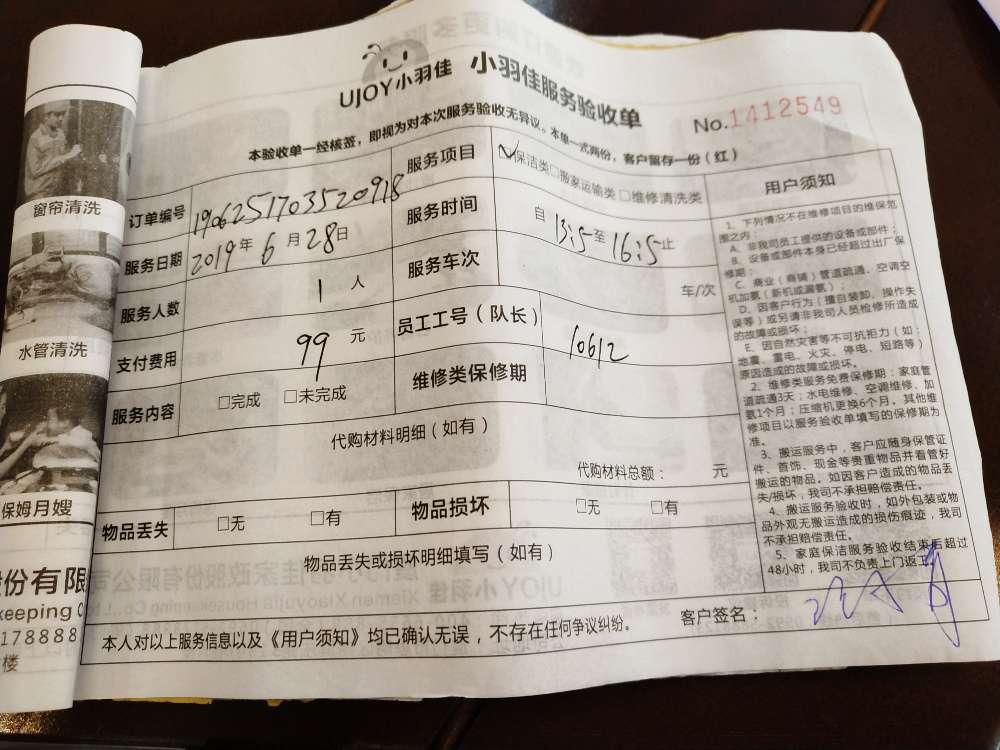 UJOY小羽佳 小羽佳服务验收单
No.1412549
本验收单一经核签，即视为对本次服务验收无异议。本单一式两份，客户留存一份（红）
订单编号 1906251703520918 服务项目 ☑保洁类□搬家运输类□维修清洗类
服务日期 2019年6月28日 服务时间 自13:5至16:5止
服务人数 1人 服务车次 车/次
支付费用 99元 员工工号（队长） 10612
服务内容 □完成 □未完成 维修类保修期
代购材料明细（如有）
代购材料总额： 元
物品丢失 □无 □有 物品损坏 □无 □有
物品丢失或损坏明细填写（如有）
本人对以上服务信息以及《用户须知》均已确认无误，不存在任何争议纠纷。 客户签名：
用户须知
1、下列情况不在维修项目的维保范
围之内：
A、非我司员工提供的设备或部件；
B、设备或部件本身已经超过出厂保
修期；
C、商业（商铺）管道疏通、空调空
机加氨（新机或漏氨）；
D、因客户行为（擅自装卸、操作失
误等）或另请非我司人员检修所造成
的故障或损坏；
E、因自然灾害等不可抗拒力（如：
地震、雷电、火灾、停电、短路等）
原因造成的故障或损坏。
2、维修类服务免费保修期：家庭管
道疏通3天；水电维修、空调维修、加
氨1个月；压缩机更换6个月。其他维
修项目以服务验收单填写的保修期为
准。
3、搬运服务中，客户应随身保管证
件、首饰、现金等贵重物品并看管好
搬运的物品。如因客户造成的物品丢
失/损坏，我司不承担赔偿责任。
4、搬运服务验收时，如外包装或物
品外观无搬运造成的损伤痕迹，我司
不承担赔偿责任。
5、家庭保洁服务验收结束后超过
48小时，我司不负责上门返工。
窗帘清洗
水管清洗
保姆月嫂
份有限
keeping C
178888
楼